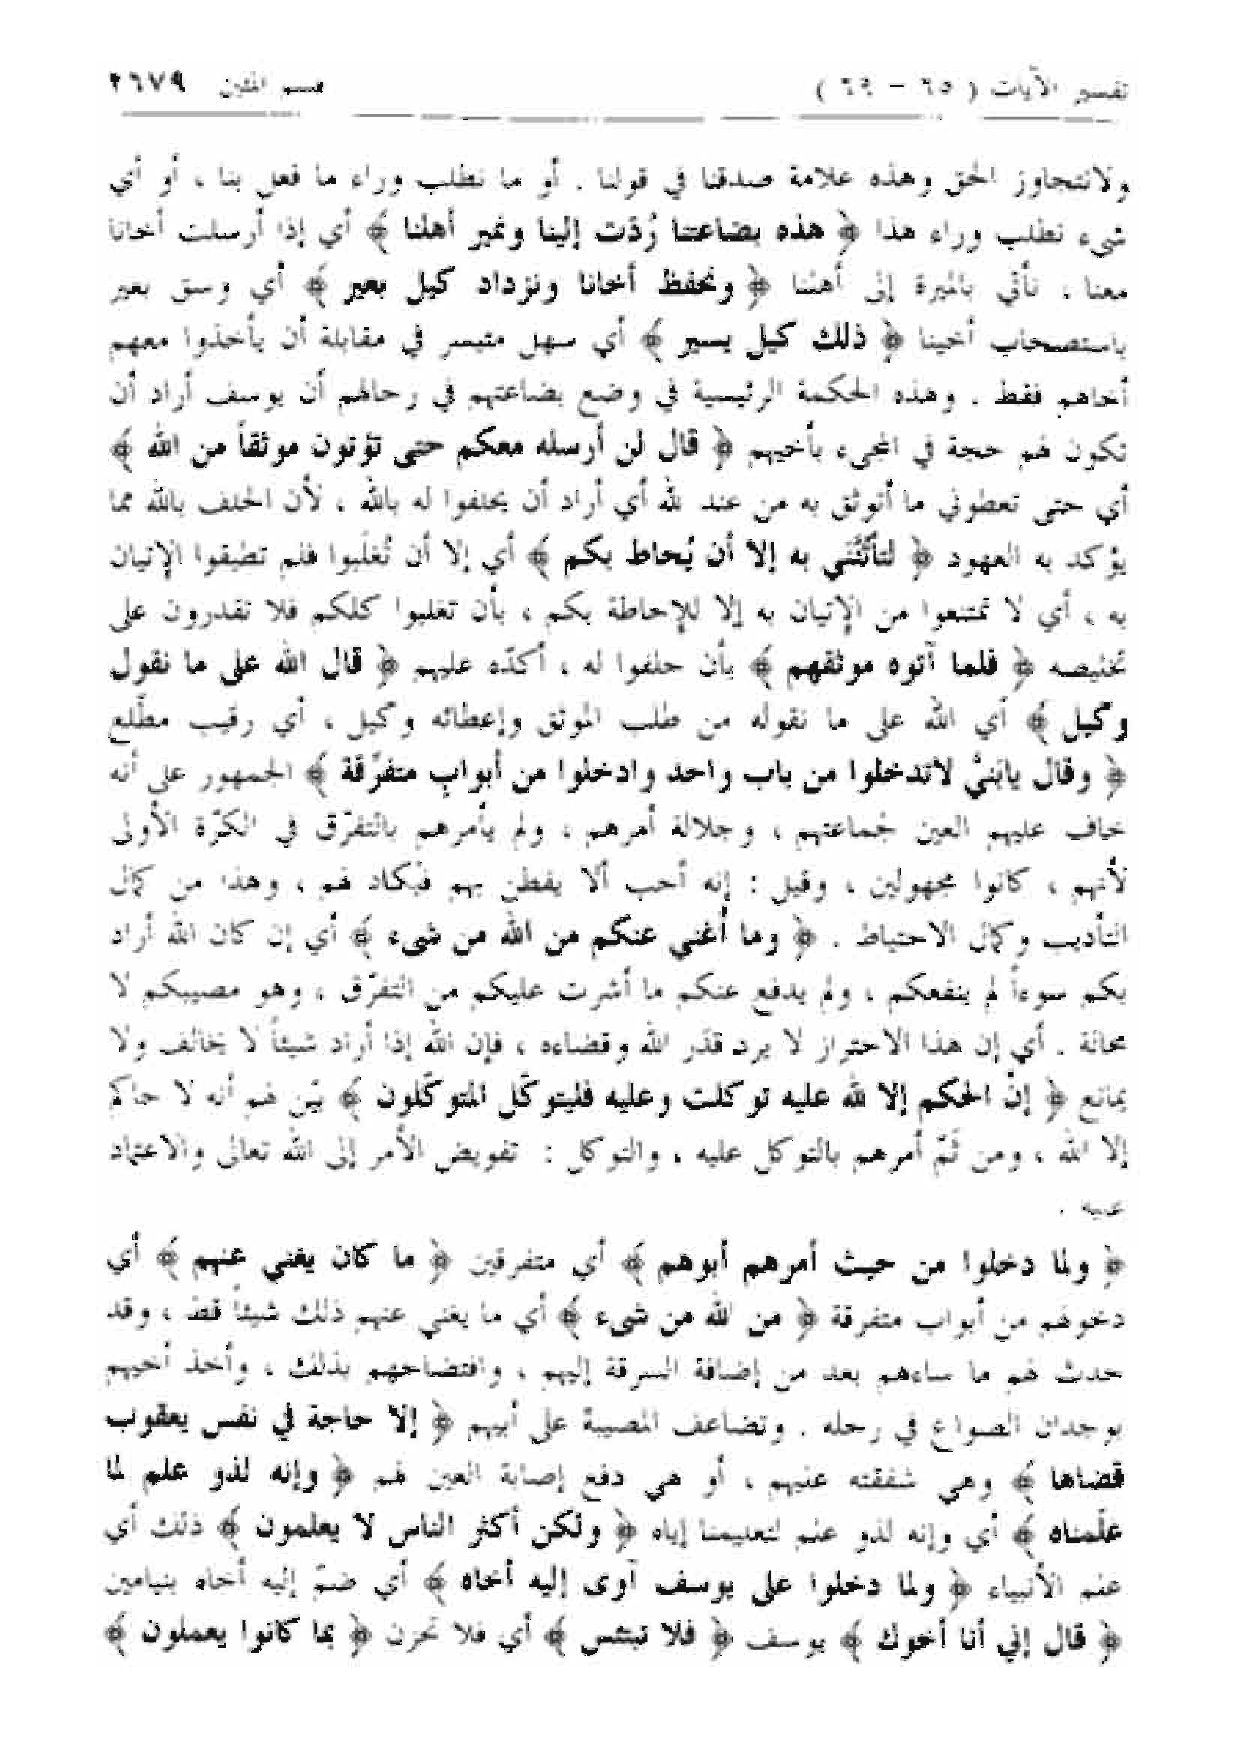 تفسير الآيات ( ٦٥ – ٦٩ ) قسم المئين ٢٦٧٩
ولانتجاوز الحق وهذه علامة صدقنا في قولنا . أو ما نطلب وراء ما فعل بنا ، أو أي
شيء نطلب وراء هذا ﴿ هذه بضاعتنا رُدّت إلينا ونمير أهلنا ﴾ أي إذا أرسلت أخانا
معنا ، نأتي بالميرة إلى أهلنا ﴿ ونحفظ أخانا ونزداد كيل بعير ﴾ أي وسق بعير
باستصحاب أخينا ﴿ ذلك كيل يسير ﴾ أي سهل متيسر في مقابلة أن يأخذوا معهم
أخاهم فقط . وهذه الحكمة الرئيسية في وضع بضاعتهم في رحالهم أن يوسف أراد أن
تكون لهم حجة في المجيء بأخيهم ﴿ قال لن أرسله معكم حتى تؤتون موثقاً من الله ﴾
أي حتى تعطوني ما أتوثق به من عند الله أي أراد أن يحلفوا له بالله ، لأن الحلف بالله مما
يؤكد به العهود ﴿ لتأتُنَّني به إلا أن يُحاط بكم ﴾ أي إلا أن تُغلَبوا فلم تطيقوا الإتيان
به ، أي لا تمتنعوا من الإتيان به إلا للإحاطة بكم ، بأن تغلبوا كلكم فلا تقدرون على
تخليصه ﴿ فلما آتوه موثقهم ﴾ بأن حلفوا له ، أكدّه عليهم ﴿ قال الله على ما نقول
وكيل ﴾ أي الله على ما نقوله من طلب الموثق وإعطائه وكيل ، أي رقيب مطّلع
﴿ وقال يابَنيَّ لاتدخلوا من باب واحد وادخلوا من أبوابٍ متفرّقة ﴾ الجمهور على أنه
خاف عليهم العين لجماعتهم ، وجلالة أمرهم ، ولم يأمرهم بالتفرّق في الكرّة الأولى
لأنهم ، كانوا مجهولين ، وقيل : إنه أحب ألا يفطن بهم فيكاد لهم ، وهذا من كمال
التأديب وكمال الاحتياط . ﴿ وما أُغني عنكم من الله من شيء ﴾ أي إن كان الله أراد
بكم سوءاً لم ينفعكم ، ولم يدفع عنكم ما أشرت عليكم من التفرّق ، وهو مصيبكم لا
محالة . أي إن هذا الاحتراز لا يرد قدَر الله وقضاءه ، فإن الله إذا أراد شيئاً لا يخالف ولا
يمانع ﴿ إنّ الحكم إلا لله عليه توكلت وعليه فليتوكّل المتوكّلون ﴾ بيّن لهم أنه لا حاكم
إلا الله ، ومن ثَمّ أمرهم بالتوكل عليه ، والتوكل : تفويض الأمر إلى الله تعالى والاعتماد
عليه .
﴿ ولما دخلوا من حيث أمرهم أبوهم ﴾ أي متفرقين ﴿ ما كان يغني عنهم ﴾ أي
دخولهم من أبواب متفرقة ﴿ من الله من شيء ﴾ أي ما يغني عنهم ذلك شيئاً قط ، وقد
حدث لهم ما ساءهم بعد من إضافة السرقة إليهم ، وافتضاحهم بذلك ، وأخذ أخيهم
بوجدان الصواع في رحله . وتضاعف المصيبة على أبيهم ﴿ إلا حاجة في نفس يعقوب
قضاها ﴾ وهي شفقته عليهم ، أو هي دفع إصابة العين لهم ﴿ وإنه لذو علم لما
علّمناه ﴾ أي وإنه لذو علم لتعليمنا إياه ﴿ ولكن أكثر الناس لا يعلمون ﴾ ذلك أي
علم الأنبياء ﴿ ولما دخلوا على يوسف آوى إليه أخاه ﴾ أي ضمّ إليه أخاه بنيامين
﴿ قال إني أنا أخوك ﴾ يوسف ﴿ فلا تبتئس ﴾ أي فلا تحزن ﴿ بما كانوا يعملون ﴾